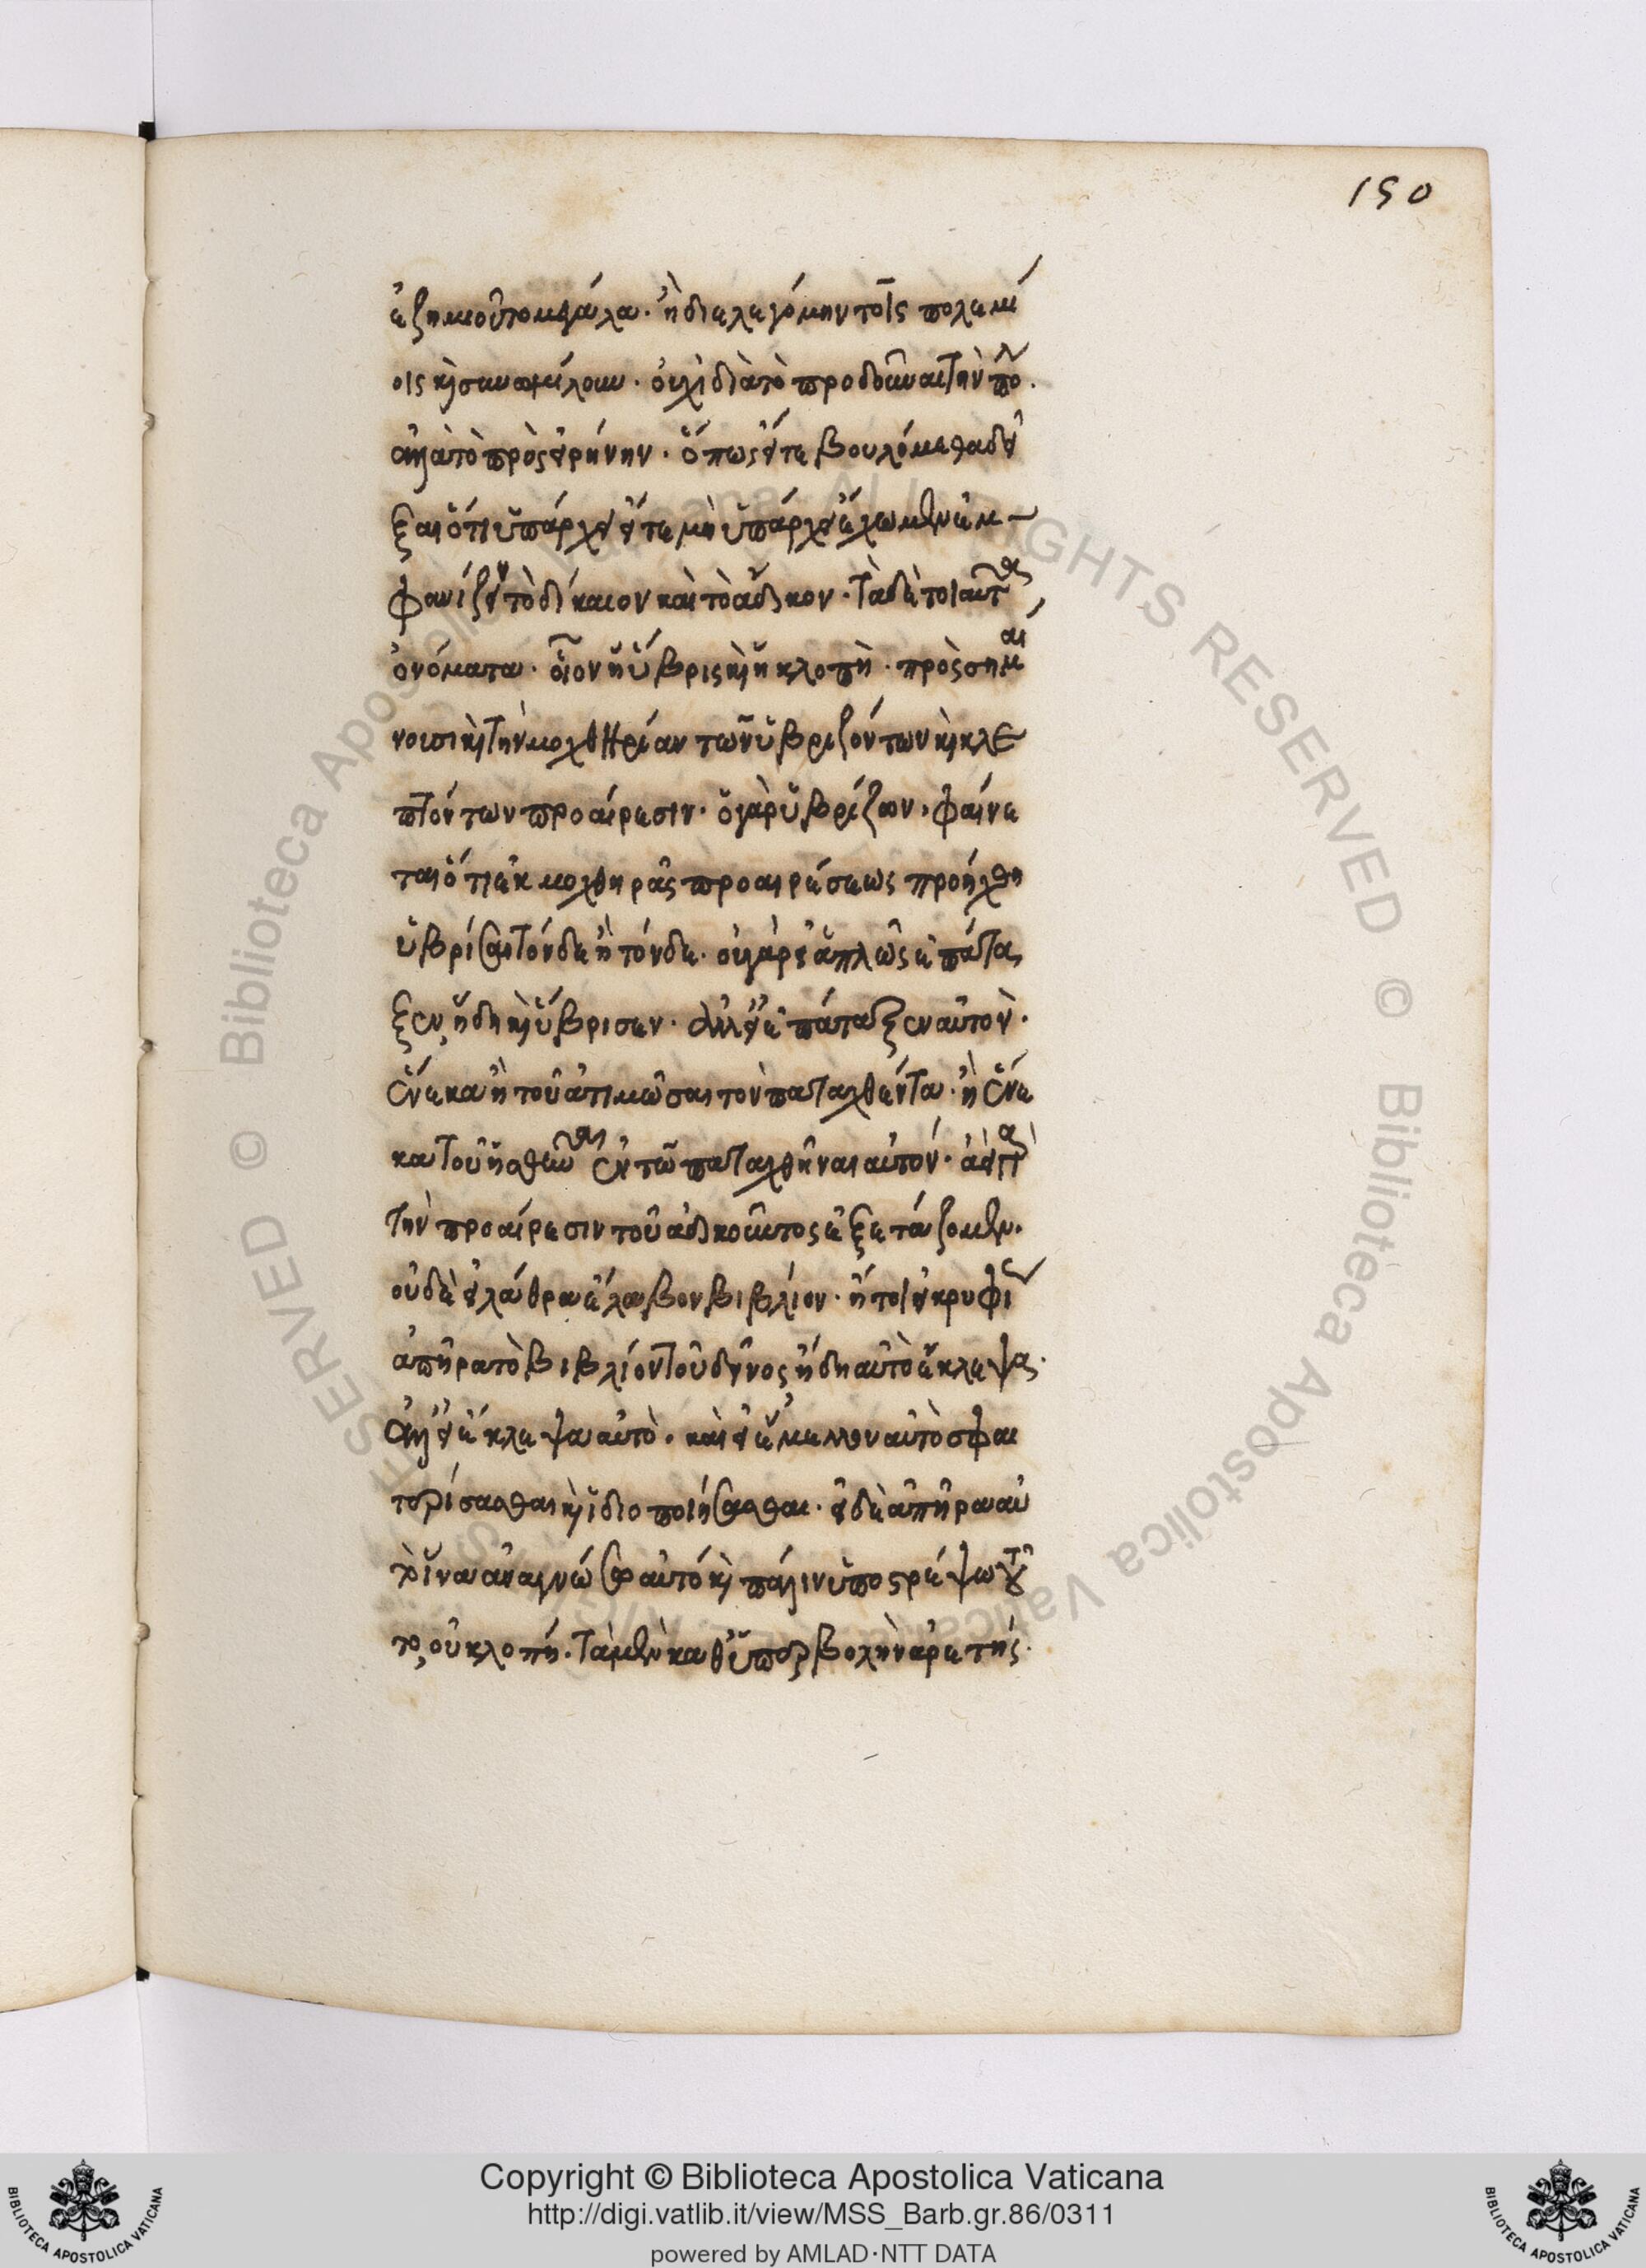 150
ἐζημιοῦτο μεγάλα· ἢ διελεγόμην τοῖς πολεμί
οις κὶ συνωμίλουν· οὐχὶ διὰ τὸ προδοῦναι τὴν πό
ἀλλὰ τὸ πρὸς εἰρήνην· ὅπως εἴτε βουλόμεθα δεῖ
ξαι ὅτι ὑπάρχει εἴτε μὴ ὑπάρχει ἔχωμεν ἐμ
φανίζειν τὸ δίκαιον καὶ τὸ ἄδικον· τὰ δὲ τοιαῦτα
ὀνόματα· οἷον ἡ ὕβρις κὶ ἡ κλοπὴ· προσσημαί
νουσι κὶ τὴν μοχθηρίαν τῶν ὑβριζόντων κὶ κλε
πτόντων προαίρεσιν· ὁ γὰρ ὑβρίζων, φαίνε
ται ὅτι ἐκ μοχθηρᾶς προαιρέσεως προήχθη
ὑβρίσαι τόνδε ἢ τόνδε· οὐ γὰρ εἰ ἁπλῶς ἐπάτα
ξεν, ἤδη κὶ ὕβρισεν· ἀλλ' εἰ ἐπάταξεν αὐτὸν·
ἕνεκα ἢ τοῦ ἀτιμῶσαι τὸν παταχθέντα· ἢ ἕνε
κα τοῦ ἡσθῆναι ἐν τῷ παταχθῆναι αὐτόν· ἀεὶ
τὴν προαίρεσιν τοῦ ἀδικοῦντος ἐξετάζομεν·
οὐδὲ εἰ λάθρα ἔλαβον βιβλίον· ἤτοι εἰ κρυφίως
ἀπῆρα τὸ βιβλίον τοῦ δεῖνος ἤδη αὐτὸ ἔκλεψα·
ἀλλ' εἰ ἔκλεψα αὐτὸ· καὶ εἰ ἔμελλον αὐτὸ σφε
τερίσασθαι κὶ ἰδιοποιήσασθαι· εἰ δὲ ἀπῆρα αὐ
τὸ ἵνα ἀναγνώσω αὐτὸ κὶ πάλιν ὑποστρέψω τοῦ
το, οὐ κλοπή· τὰ μὲν καθ' ὑπερβολὴν ἀρετῆς·
Copyright © Biblioteca Apostolica Vaticana
http://digi.vatlib.it/view/MSS_Barb.gr.86/0311
powered by AMLAD·NTT DATA